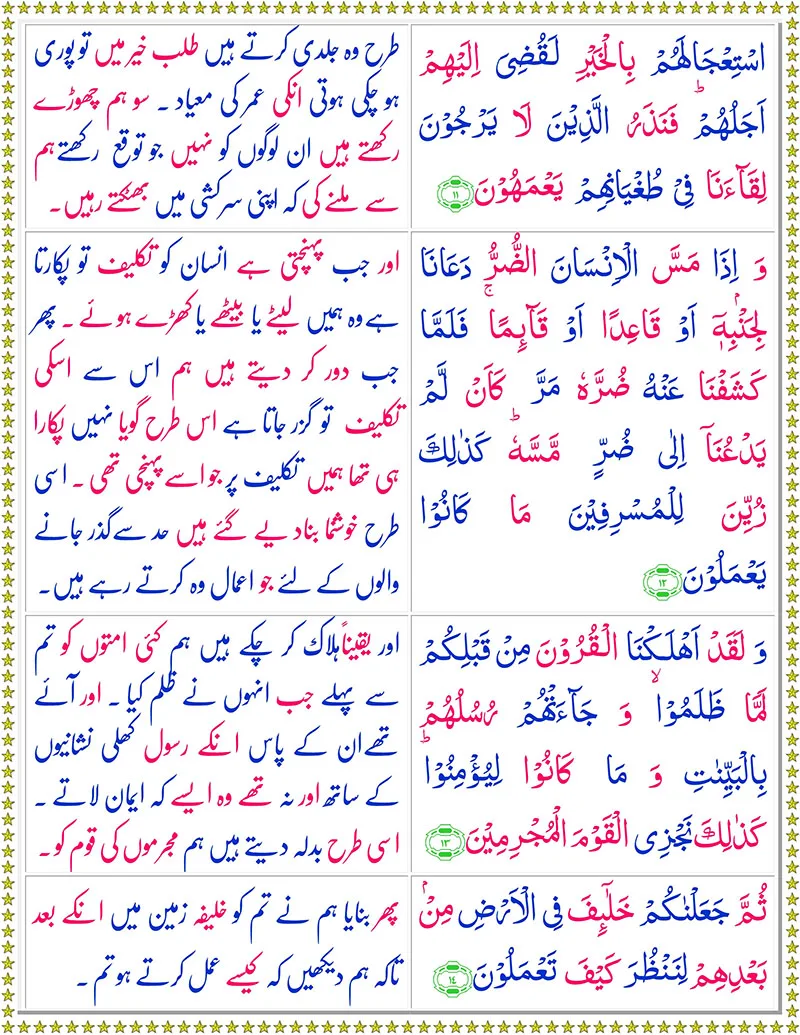 اسْتِعْجَالَهُمْ بِالْخَيْرِ لَقُضِىَ اِلَيْهِمْ
اَجَلُهُمْ ؕ فَنَذَرُ الَّذِيْنَ لَا يَرْجُوْنَ
لِقَآءَنَا فِىْ طُغْيَانِهِمْ يَعْمَهُوْنَ ﴿۱۱﴾
طرح وہ جلدی کرتے ہیں طلب خیر میں تو پوری
ہو چکی ہوتی انکی عمر کی معیاد ۔ سو ہم چھوڑے
رکھتے ہیں ان لوگوں کو نہیں جو توقع رکھتے ہم
سے ملنے کی کہ اپنی سرکشی میں بھٹکتے رہیں۔
وَ اِذَا مَسَّ الْاِنْسَانَ الضُّرُّ دَعَانَا
لِجَنْۢبِهٖۤ اَوْ قَاعِدًا اَوْ قَآئِمًا ۚ فَلَمَّا
كَشَفْنَا عَنْهُ ضُرَّهٗ مَرَّ كَاَنْ لَّمْ
يَدْعُنَاۤ اِلٰى ضُرٍّ مَّسَّهٗ ؕ كَذٰلِكَ
زُيِّنَ لِلْمُسْرِفِيْنَ مَا كَانُوْا
يَعْمَلُوْنَ ﴿۱۲﴾
اور جب پہنچتی ہے انسان کو تکلیف تو پکارتا
ہے وہ ہمیں لیٹے یا بیٹھے یا کھڑے ہوئے ۔ پھر
جب دور کر دیتے ہیں ہم اس سے اسکی
تکلیف تو گزر جاتا ہے اس طرح گویا نہیں پکارا
ہی تھا ہمیں تکلیف پر جو اسے پہنچی تھی ۔ اسی
طرح خوشنما بنا دیے گئے ہیں حد سے گذر جانے
والوں کے لئے جو اعمال وہ کرتے رہے ہیں۔
وَ لَقَدْ اَهْلَكْنَا الْقُرُوْنَ مِنْ قَبْلِكُمْ
لَمَّا ظَلَمُوْا ۙ وَ جَآءَتْهُمْ رُسُلُهُمْ
بِالْبَيِّنٰتِ وَ مَا كَانُوْا لِيُؤْمِنُوْا ؕ
كَذٰلِكَ نَجْزِى الْقَوْمَ الْمُجْرِمِيْنَ ﴿۱۳﴾
اور یقیناً ہلاک کر چکے ہیں ہم کئی امتوں کو تم
سے پہلے جب انہوں نے ظلم کیا ۔ اور آئے
تھے ان کے پاس انکے رسول کھلی نشانیوں
کے ساتھ اور نہ تھے وہ ایسے کہ ایمان لاتے ۔
اسی طرح بدلہ دیتے ہیں ہم مجرموں کی قوم کو۔
ثُمَّ جَعَلْنٰكُمْ خَلٰٓئِفَ فِى الْاَرْضِ مِنْۢ
بَعْدِهِمْ لِنَنْظُرَ كَيْفَ تَعْمَلُوْنَ ﴿۱۴﴾
پھر بنایا ہم نے تم کو خلیفہ زمین میں انکے بعد
تاکہ ہم دیکھیں کہ کیسے عمل کرتے ہو تم ۔